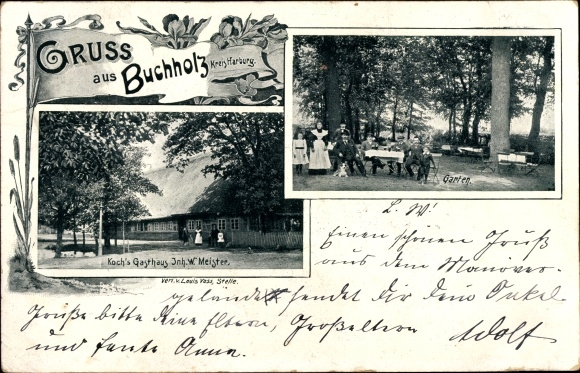 GRUSS
aus Buchholz Kreis Harburg.
Garten.
Koch's Gasthaus Inh. W. Meister.
Verl. v. Louis Voss, Stelle.
L. W!
Einen schönen Gruß
aus dem Manöver-
gelände sendet dir dein Onkel
Adolf
Grüße bitte deine Eltern, Großeltern
und Tante Anna.